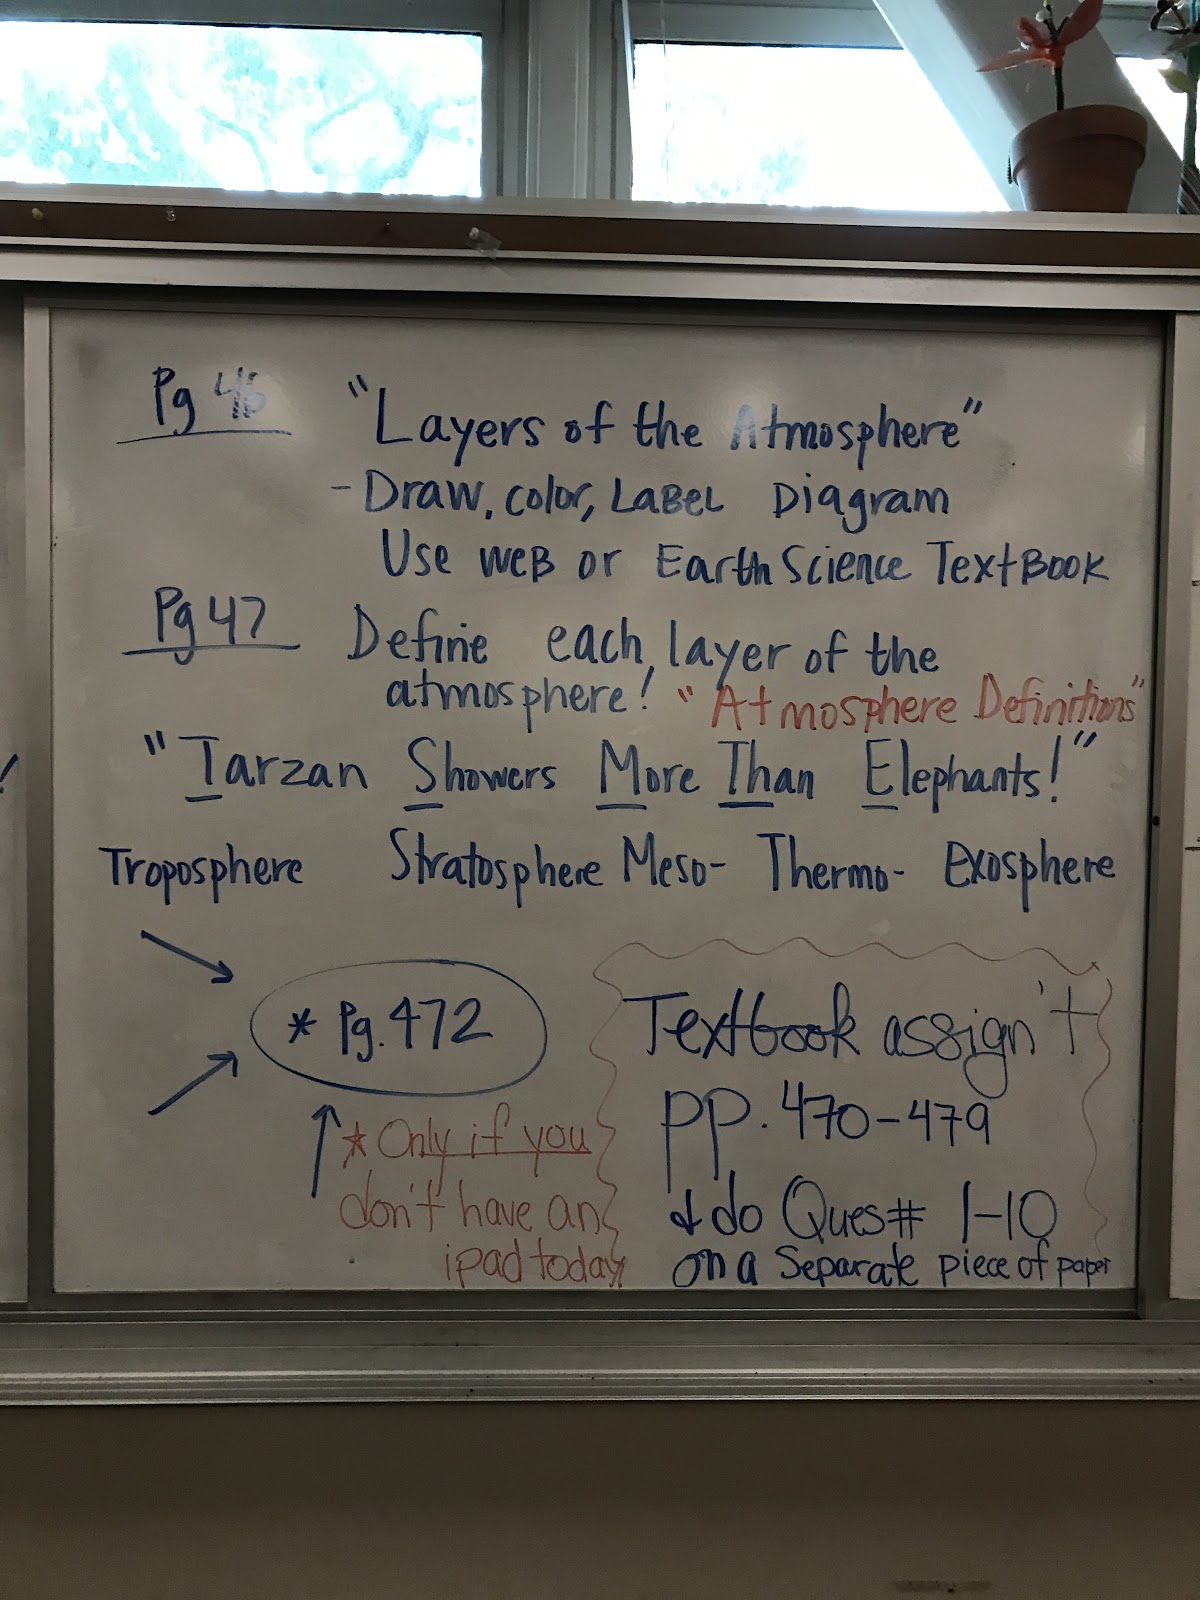 Pg 46 "Layers of the Atmosphere"
- Draw, color, LaBeL Diagram
Use weB or Earth Science TextBook
Pg 47 Define each layer of the
atmosphere! "Atmosphere Definitions"
"Tarzan Showers More Than Elephants!"
Troposphere Stratosphere Meso- Thermo- Exosphere
* Pg. 472
* Only if you
don't have an
ipad today
Textbook assign't
pp. 470-479
& do Ques# 1-10
on a Separate piece of paper
!